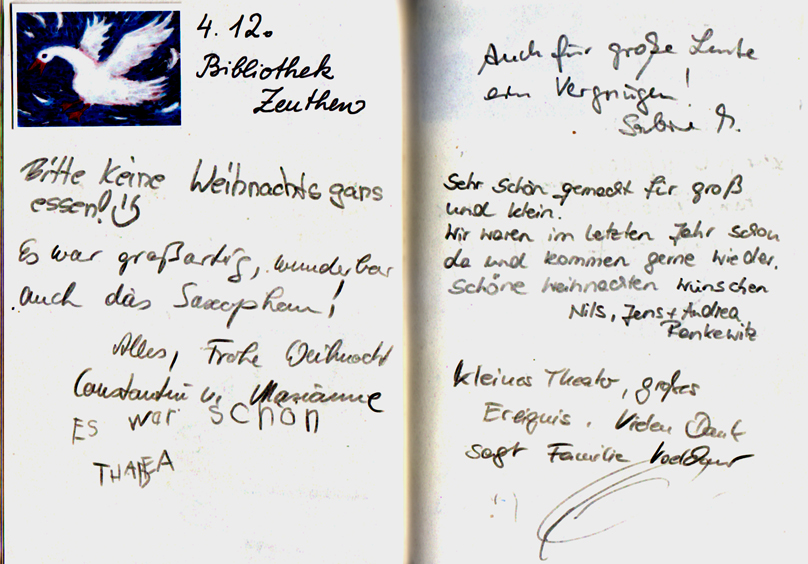 4. 12.
Bibliothek
Zeuthen
Bitte keine Weihnachtsgans
essen!
Es war großartig, wunderbar
auch das Saxophon!
Alles, Frohe Weihnacht
Constantin u. Marianne
ES war schön
THABEA
Auch für große Leute
ein Vergnügen!
Sabine M.
Sehr schön gemacht für groß
und klein.
Wir waren im letzten Jahr schon
da und kommen gerne wieder.
Schöne Weihnachten wünschen
Nils, Jens + Andrea
Renkewitz
Kleines Theater, großes
Ereignis. Vielen Dank
sagt Familie